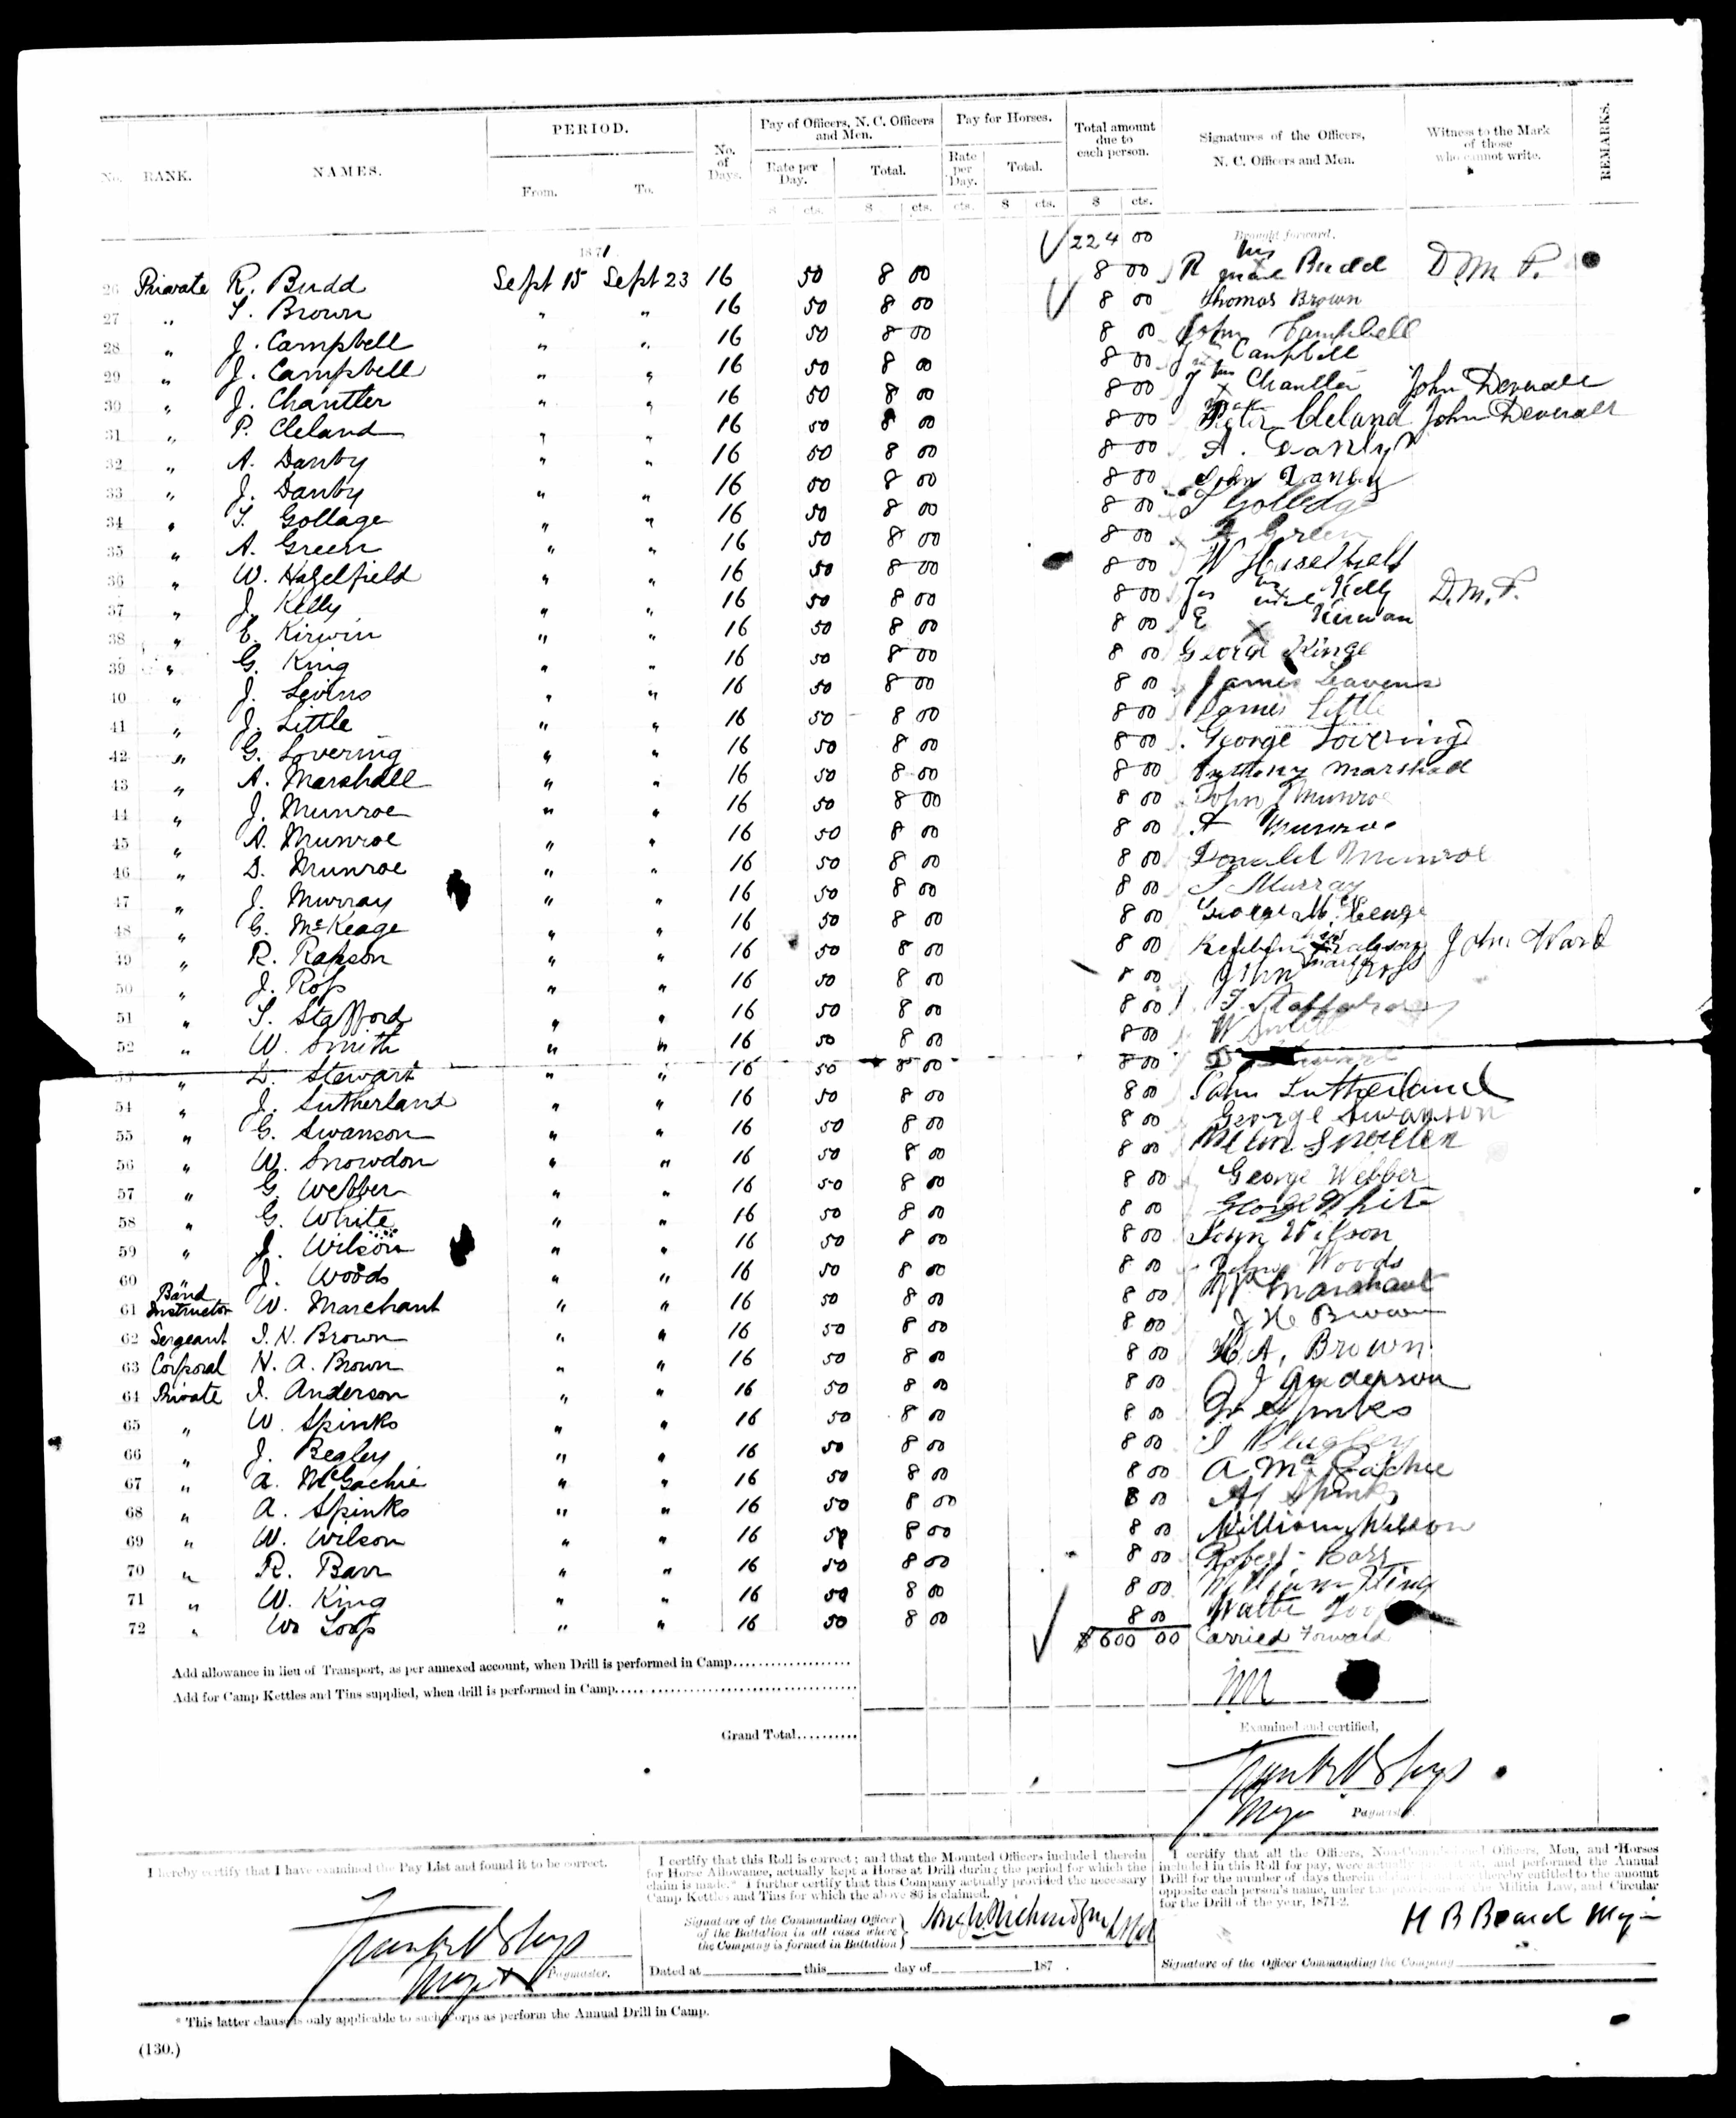 No. RANK. NAMES. PERIOD. From. To. No. of Days. Pay of Officers, N. C. Officers and Men. Rate per Day. $ cts. Total. $ cts. Pay for Horses. Rate per Day. cts. Total. $ cts. Total amount due to each person. $ cts. Signatures of the Officers, N. C. Officers and Men. Witness to the Mark of those who cannot write. REMARKS.
1871 224 00 Brought forward.
26 Private R. Budd Sept 15 Sept 23 16 50 8 00 8 00 R his x mark Budd D M P.
27 " T. Brown " " 16 50 8 00 8 00 Thomas Brown
28 " J. Campbell " " 16 50 8 00 8 00 John Campbell
29 " J. Campbell " " 16 50 8 00 8 00 Campbell
30 " J. Chantler " " 16 50 8 00 8 00 J his x mark Chantler John Deverall
31 " P. Cleland " " 16 50 8 00 8 00 Peter Cleland John Deverall
32 " A. Danby " " 16 50 8 00 8 00 A. Danby
33 " J. Danby " " 16 50 8 00 8 00 John Danby
34 " T. Gollage " " 16 50 8 00 8 00 T Golledge
35 " A. Green " " 16 50 8 00 8 00 A Green
36 " W. Hazelfield " " 16 50 8 00 8 00 W
37 " J. Kelly " " 16 50 8 00 8 00 Jas x Kelly D. M. P.
38 " E. Kirwin " " 16 50 8 00 8 00 E x Kirwan
39 " G. King " " 16 50 8 00 8 00 George Kinge
40 " J. Levins " " 16 50 8 00 8 00 James Leavens
41 " J. Little " " 16 50 8 00 8 00 James Little
42 " G. Lovering " " 16 50 8 00 8 00 George Lovering
43 " A. Marshall " " 16 50 8 00 8 00 Anthony Marshall
44 " J. Munroe " " 16 50 8 00 8 00 John Munroe
45 " A. Munroe " " 16 50 8 00 8 00 A Munroe
46 " D. Munroe " " 16 50 8 00 8 00 Donald Munroe
47 " J. Murray " " 16 50 8 00 8 00 J Murray
48 " G. McKeage " " 16 50 8 00 8 00 George
49 " R. Rapson " " 16 50 8 00 8 00 Reuben his x mark Rapson John Ward
50 " J. Ross " " 16 50 8 00 8 00 John Ross
51 " T. Stafford " " 16 50 8 00 8 00 T. Stafford
52 " W. Smith " " 16 50 8 00 8 00 W Smith
53 " D. Stewart " " 16 50 8 00 8 00 D Stewart
54 " J. Sutherland " " 16 50 8 00 8 00 John Sutherland
55 " G. Swanson " " 16 50 8 00 8 00 George Swanson
56 " W. Snowdon " " 16 50 8 00 8 00
57 " G. Webber " " 16 50 8 00 8 00 George Webber
58 " G. White " " 16 50 8 00 8 00 George White
59 " J. Wilson " " 16 50 8 00 8 00 John Wilson
60 " J. Woods " " 16 50 8 00 8 00 John Woods
61 Band Instructor W. Marchant " " 16 50 8 00 8 00 W. Marchant
62 Sergeant J. H. Brown " " 16 50 8 00 8 00 J H Brown
63 Corporal H. A. Brown " " 16 50 8 00 8 00 H. A. Brown
64 Private J. Anderson " " 16 50 8 00 8 00 J Anderson
65 " W. Spinks " " 16 50 8 00 8 00 W Spinks
66 " J. Begley " " 16 50 8 00 8 00 J
67 " A. McGachie " " 16 50 8 00 8 00 A Mc Eachie
68 " A. Spinks " " 16 50 8 00 8 00 A Spinks
69 " W. Wilson " " 16 50 8 00 8 00 William Wilson
70 " R. Barr " " 16 50 8 00 8 00 Robert Barr
71 " W. King " " 16 50 8 00 8 00 William King
72 " W. Loop " " 16 50 8 00 8 00 Walter
$600 00 Carried Forward
Add allowance in lieu of Transport, as per annexed account, when Drill is performed in Camp
Add for Camp Kettles and Tins supplied, when drill is performed in Camp
Grand Total
Examined and certified,
Major Paymaster.
I hereby certify that I have examined the Pay List and found it to be correct.
Major Paymaster.
I certify that this Roll is correct; and that the Mounted Officers included therein
for Horse Allowance, actually kept a Horse at Drill during the period for which the
claim is made.* I further certify that this Company actually provided the necessary
Camp Kettles and Tins for which the above $6 is claimed.
Signature of the Commanding Officer
of the Battalion in all cases where
the Company is formed in Battalion
Dated at this day of 187 .
I certify that all the Officers, Non-Commissioned Officers, Men, and *Horses
included in this Roll for pay, were actually present at, and performed the Annual
Drill for the number of days therein and are thereby entitled to the amount
opposite each person's name, under the provisions of the Militia Law, and Circular
for the Drill of the year, 1871-2.
H B Beard Major
Signature of the Officer Commanding the Company
* This latter clause is only applicable to such Corps as perform the Annual Drill in Camp.
(130.)